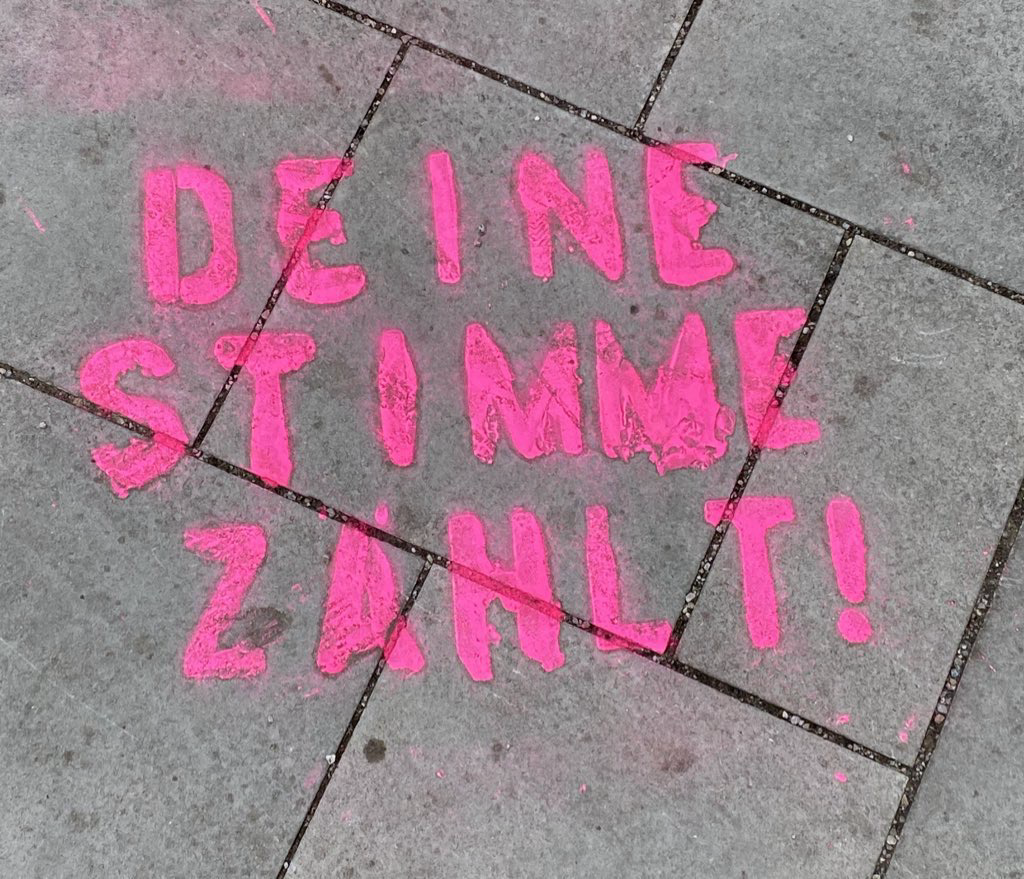 DEINE
STIMME
ZÄHLT!